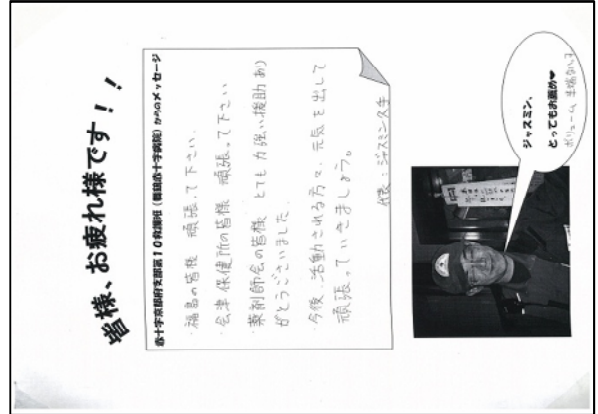 皆様、お疲れ様です！！
赤十字京都府支部第10救護班（舞鶴赤十字病院）からのメッセージ
・福島の皆様 頑張って下さい。
・会津保健所の皆様 頑張って下さい
・薬剤師会の皆様 とても力強い援助あり
がとうございました。
・今後、活動される方々、元気を出して
頑張っていきましょう。
代表：ジャスミン久寺
ジャスミン、
とってもお薦め❤
ボリューム